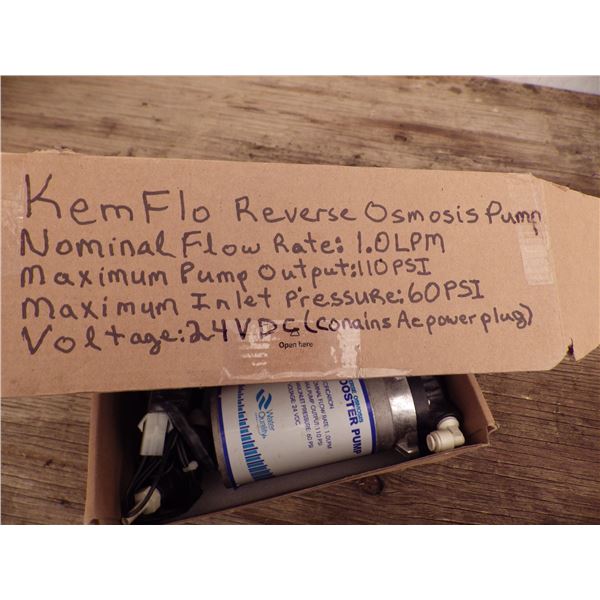 KemFlo Reverse Osmosis Pump
Nominal Flow Rate: 1.0LPM
Maximum Pump Output:110PSI
Maximum Inlet Pressure:60PSI
Voltage:24VDC (conains Ac power plug)
Open here
OOSTER PUMP
CIFICATION
OMINAL FLOW RATE: 1.0LPM
PUMP OUTPUT: 110 PSI
INLET PRESSURE: 60 PSI
VOLTAGE: 24 VDC
Water
Quality